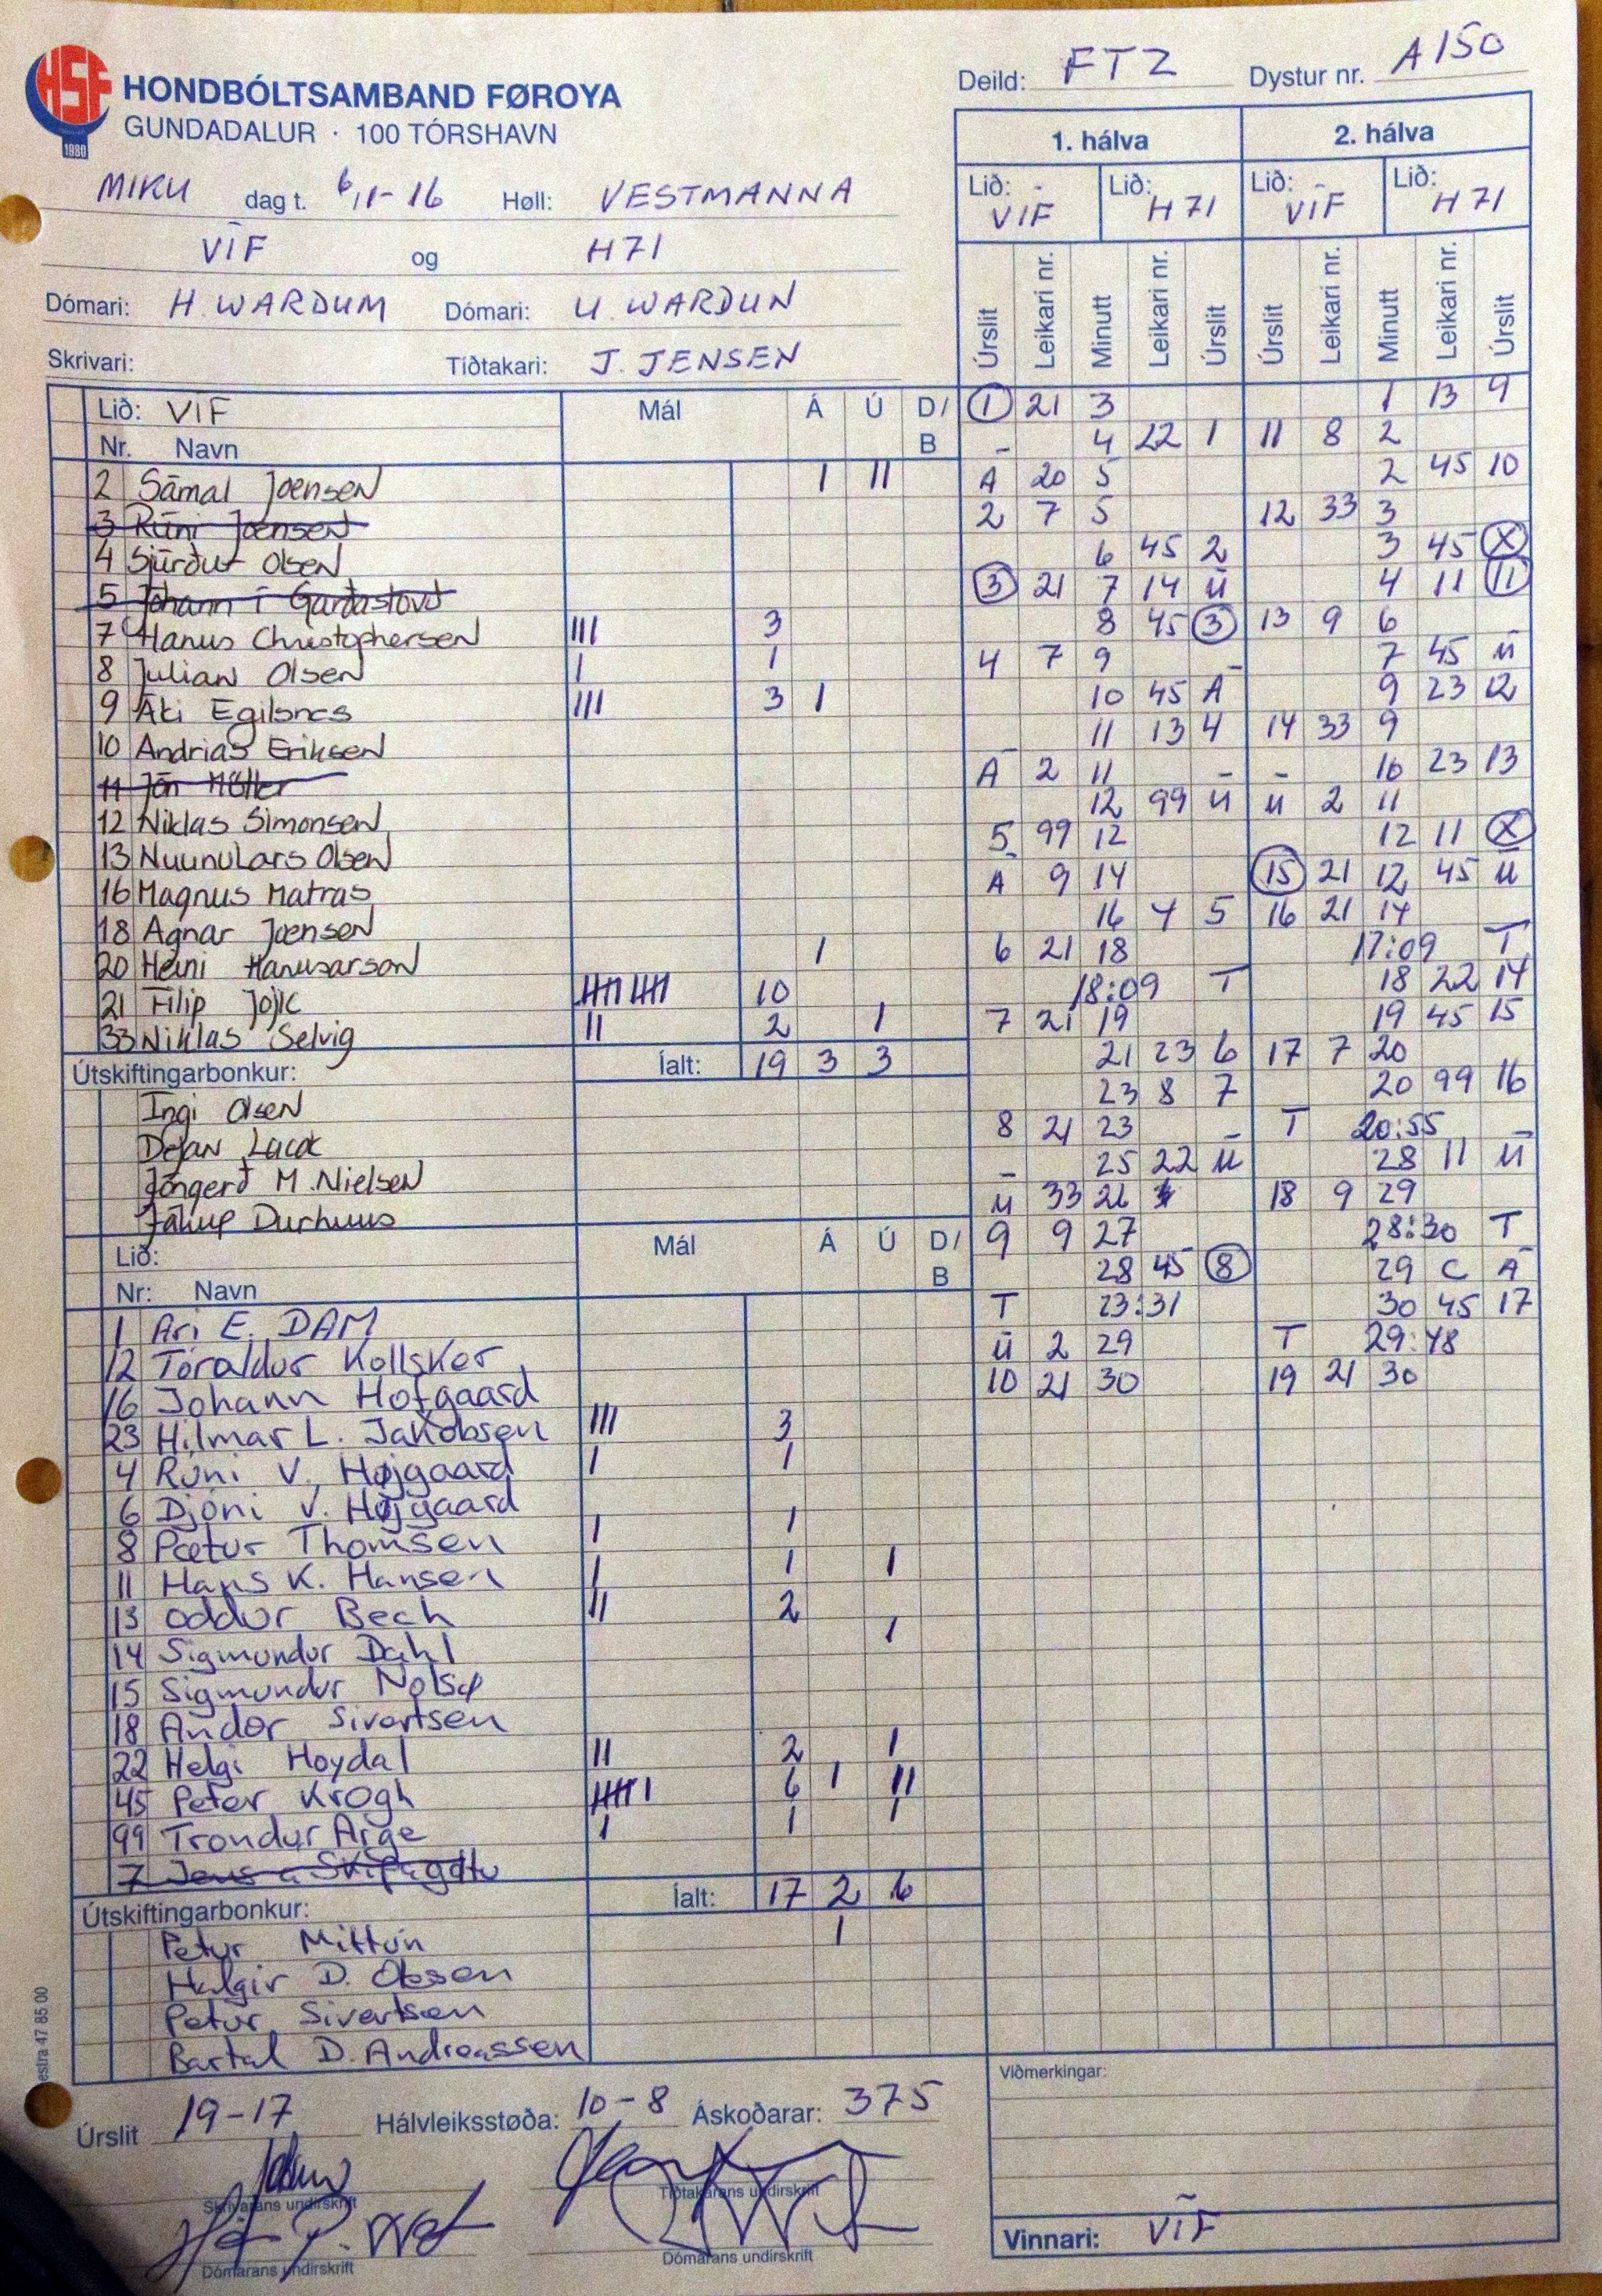 HSF
1980
HONDBÓLTSAMBAND FØROYA
GUNDADALUR · 100 TÓRSHAVN
Deild: FTZ Dystur nr. A150
MIKU dag t. 6/11-16 Høll: VESTMANNA
VÍF og H71
Dómari: H. WARDUM Dómari: U. WARDUN
Skrivari: Tíðtakari: J. JENSEN
Lið: VÍF Mál Á Ú D/B
Nr. Navn
2 Sámal Joensen I II
3 Rúni Joensen
4 Sjúrður Olsen
5 Jóhann í Garðastovu
7 Hanus Christophersen III 3
8 Julian Olsen I 1
9 Áki Egilsnes III 3 I
10 Andrias Eriksen
11 Ján Müller
12 Niklas Simonsen
13 Nuunu Lars Olsen
16 Magnus Matras
18 Agnar Joensen
20 Heini Hanusarson I
21 Filip Jojic IIIII IIIII 10
33 Niklas Selvig II 2 I
Íalt: 19 3 3
Útskiftingarbonkur:
Ingi Olsen
Dejan
Jóngerð M. Nielsen
Jákup Durhuus
Lið: Mál Á Ú D/B
Nr: Navn
1 Ari E. DAM
12 Tóraldur Kollsker
16 Jóhann Hofgaard
23 Hilmar L. Jakobsen III 3
4 Rúni V. Højgaard I 1
6 Djóni V. Højgaard
8 Pætur Thomsen I 1
11 Hans K. Hansen I 1 I
13 Oddur Bech II 2
14 Sigmundur Dahl I
15 Sigmundur Nolsø
18 Andor Sivertsen
22 Helgi Hoydal II 2 I
45 Peter Krogh IIIII I 6 I II
99 Trondur Arge I 1 I
7 Jens á
Íalt: 17 2 6
Útskiftingarbonkur:
Petur Mittún I
Helgir D. Olsen
Petur Sivertsen
Bartal D. Andreassen
Úrslit 19-17 Hálvleiksstøða: 10-8 Áskoðarar: 375
Skrivarans undirskrift Tíðtakarans undirskrift
Dómarans undirskrift Dómarans undirskrift
estra 47 85 00
1. hálva 2. hálva
Lið: VÍF Lið: H71 Lið: VÍF Lið: H71
Úrslit Leikari nr. Minutt Leikari nr. Úrslit Úrslit Leikari nr. Minutt Leikari nr. Úrslit
1 21 3 1 13 9
4 22 1 11 8 2
Á 20 5 2 45 10
2 7 5 12 33 3
6 45 2 3 45 X
3 21 7 14 Ú 4 11 11
8 45 3 13 9 6
4 7 9 7 45 Ú
10 45 Á 9 23 12
11 13 4 14 33 9
Á 2 11 10 23 13
12 99 Ú Ú 2 11
5 99 12 12 11 X
Á 9 14 15 21 12 45 Ú
16 4 5 16 21 14
6 21 18 17:09 T
18:09 T 18 22 14
7 21 19 19 45 15
21 23 6 17 7 20
23 8 7 20 99 16
8 21 23 T 20:55
25 22 Ú 28 11 Ú
Ú 33 26 18 9 29
9 9 27 28:30 T
28 45 8 29 C Á
T 23:31 30 45 17
Ú 2 29 T 29:48
10 21 30 19 21 30
Viðmerkingar:
Vinnari: VÍF